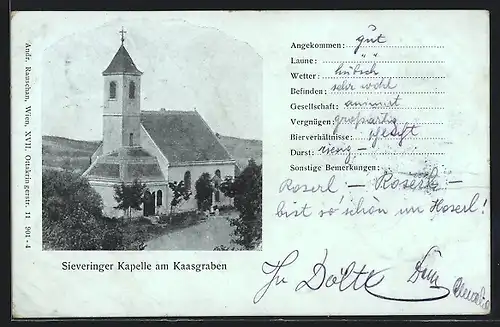 Andr. Ranschau, Wien, XVII. Ottakringerstr. 11 801-4
Sieveringer Kapelle am Kaasgraben
Angekommen: gut
Laune: " "
Wetter: hübsch
Befinden: sehr wohl
Gesellschaft: animirt
Vergnügen: großartig
Bierverhältnisse:
Durst: riesig
Sonstige Bemerkungen:
Roserl – Roserl –
bist so schön im Hoserl!